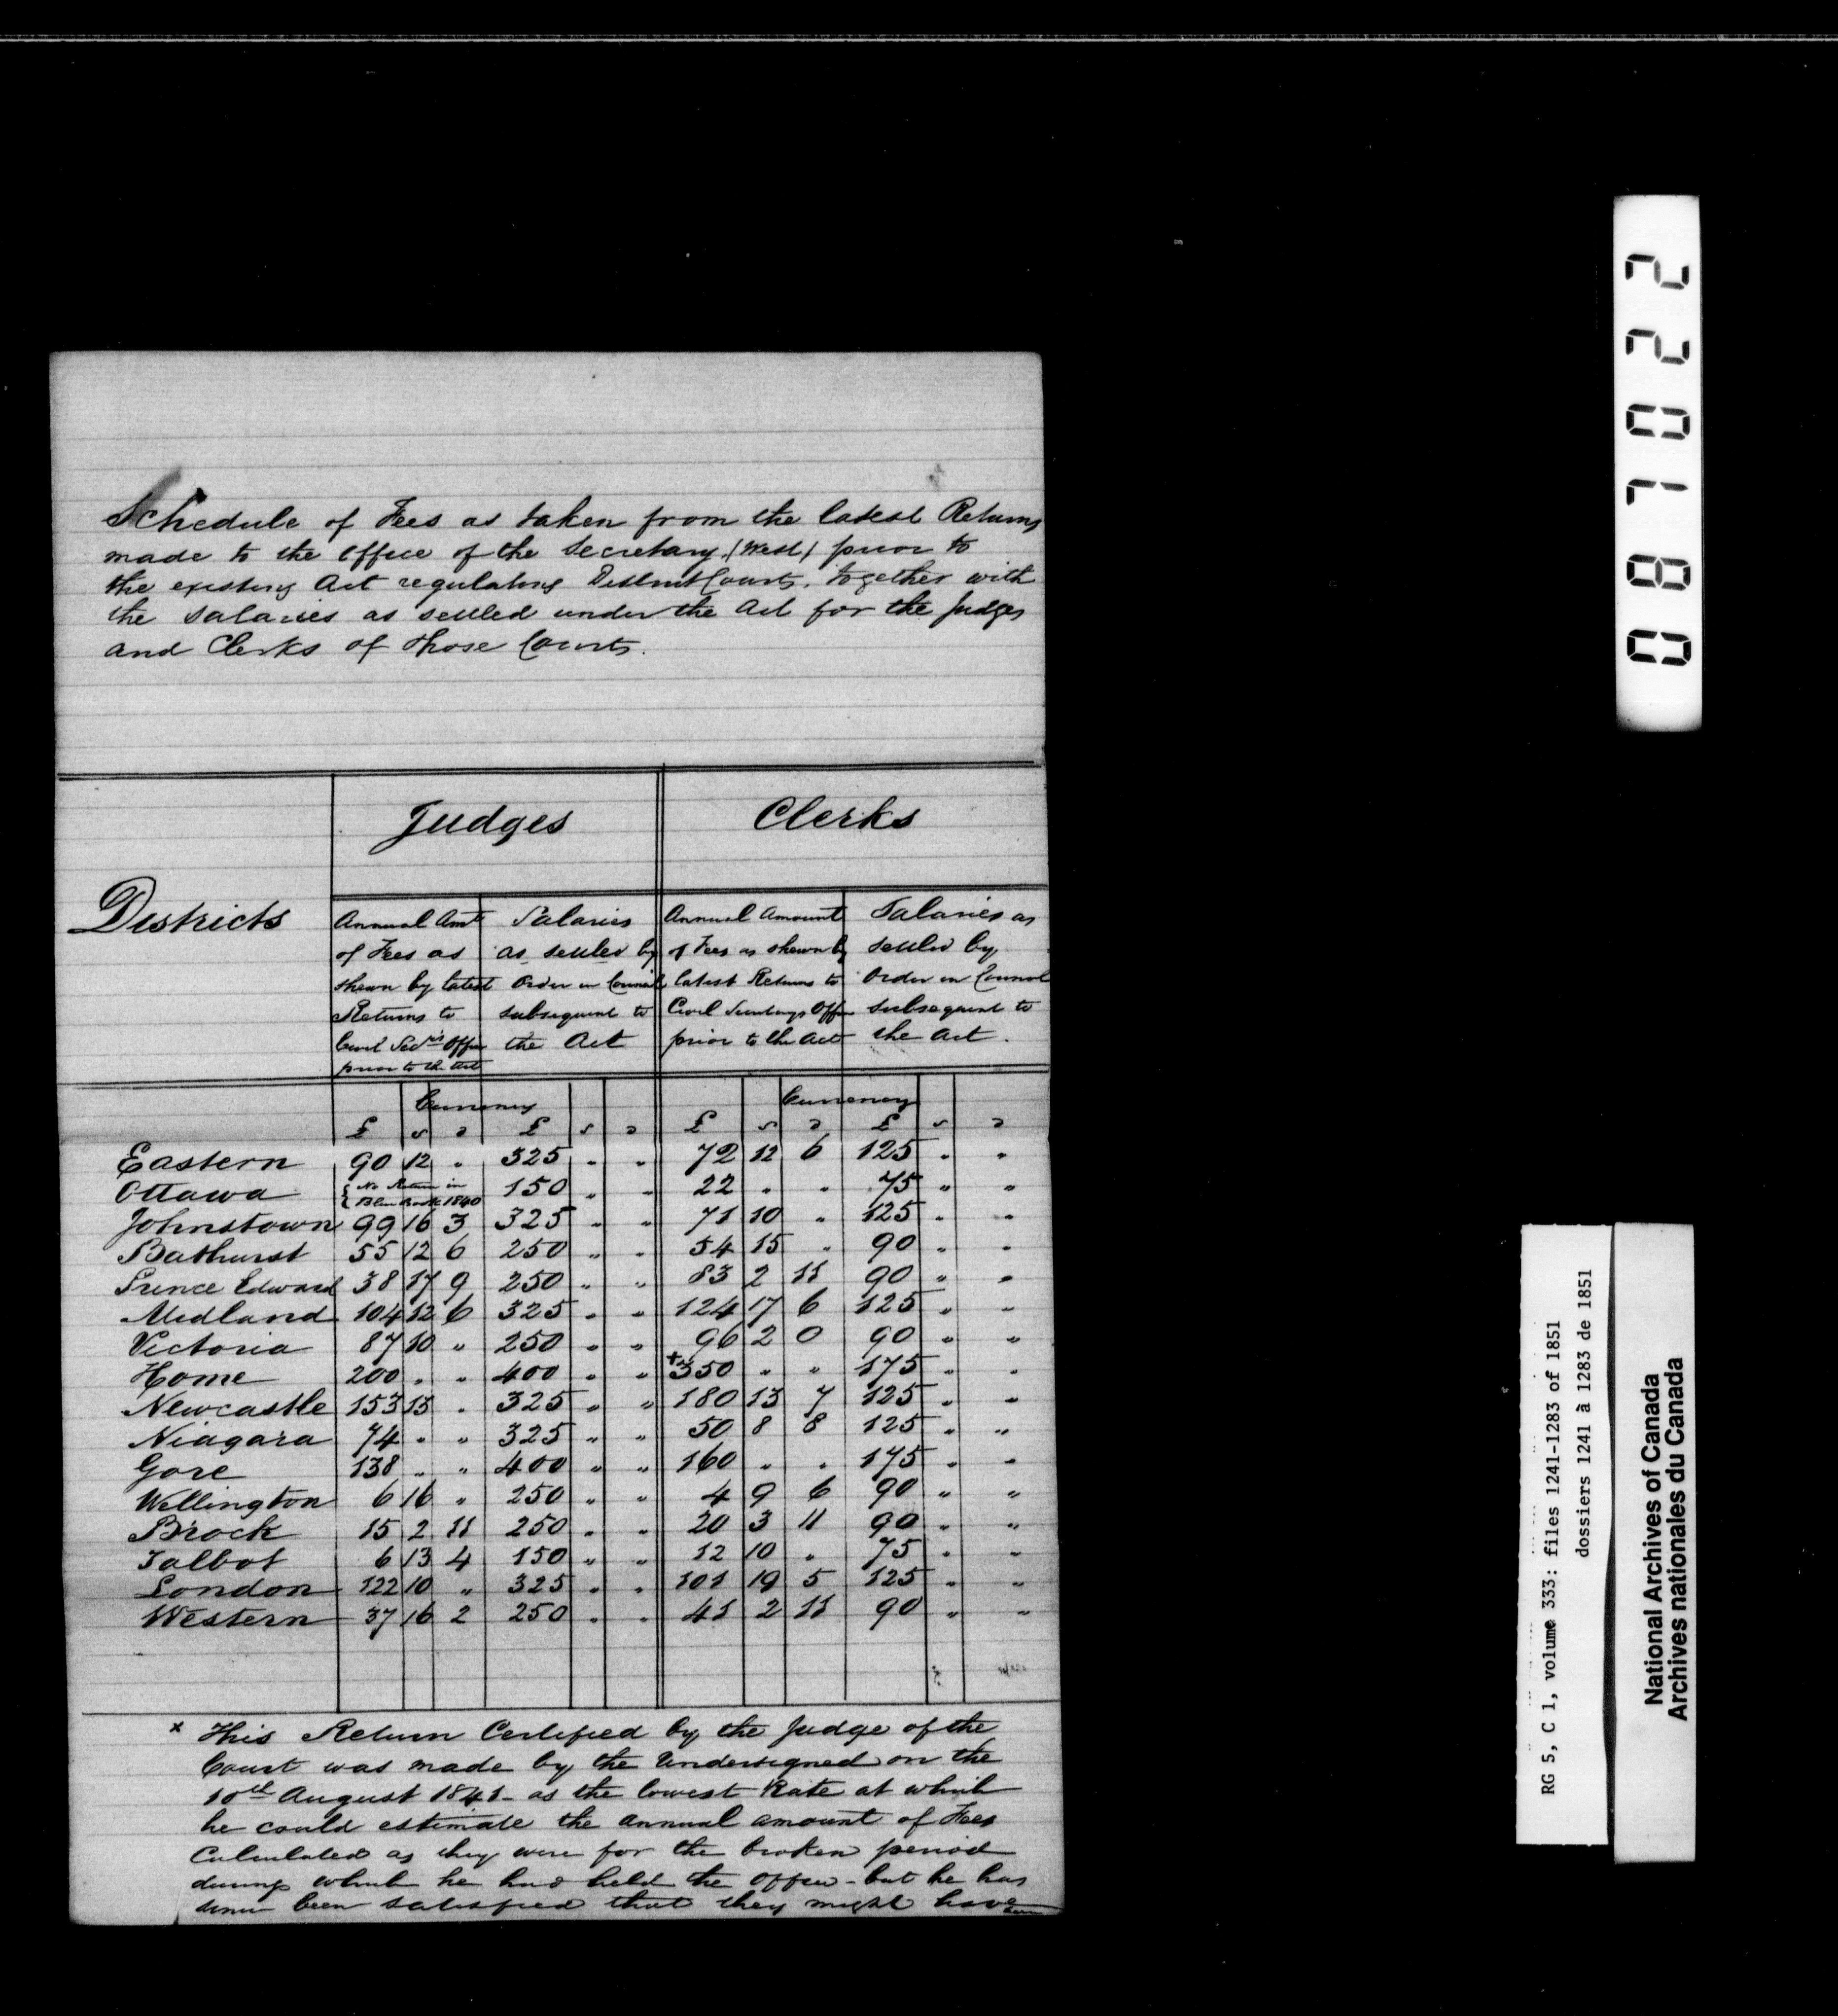 Schedule of Fees as taken from the latest Returns
made to the Office of the Secretary (West) prior to
the existing Act regulating District Courts, together with
the Salaries as settled under the Act for the Judges
and Clerks of those Courts.
Districts
Judges
Clerks
Annual Amt of Fees as shewn by latest Returns to Civil Secy's Office prior to the Act
Salaries as settled by Order in Council subsequent to the Act
Annual Amount of Fees as shewn by latest Returns to Civil Secretarys Office prior to the Act
Salaries as settled by Order in Council subsequent to the Act.
Currency Currency
£ s d £ s d £ s d £ s d
Eastern 90 12 " 325 " " 72 12 6 125 " "
Ottawa { No Return in Blue Book 1840 150 " " 22 " " 75 " "
Johnstown 99 16 3 325 " " 71 10 " 125 " "
Bathurst 55 12 6 250 " " 54 15 " 90 " "
Prince Edward 38 17 9 250 " " 83 2 11 90 " "
Midland 104 12 6 325 " " 124 17 6 125 " "
Victoria 87 10 " 250 " " 96 2 0 90 " "
Home 200 " " 400 " " +350 " " 175 " "
Newcastle 153 15 " 325 " " 180 13 7 125 " "
Niagara 74 " " 325 " " 50 8 8 125 " "
Gore 138 " " 400 " " 160 " " 175 " "
Wellington 6 16 " 250 " " 4 9 6 90 " "
Brock 15 2 11 250 " " 20 3 11 90 " "
Talbot 6 13 4 150 " " 12 10 " 75 " "
London 122 10 " 325 " " 101 19 5 125 " "
Western 37 16 2 250 " " 41 2 11 90 " "
x This Return Certified by the Judge of the
Court was made by the Undersigned on the
10th August 1841 - as the lowest Rate at which
he could estimate the annual amount of Fees
Calculated as they were for the broken period
during which he had held the Office - but he has
since been satisfied that they might have
087022
RG 5, C 1, volume 333: files 1241-1283 of 1851
dossiers 1241 à 1283 de 1851
National Archives of Canada
Archives nationales du Canada